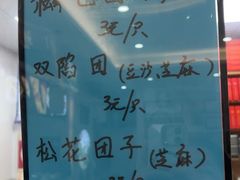 团
3元/只
双馅团(豆沙芝麻)
3元/只
松花团子(芝麻)